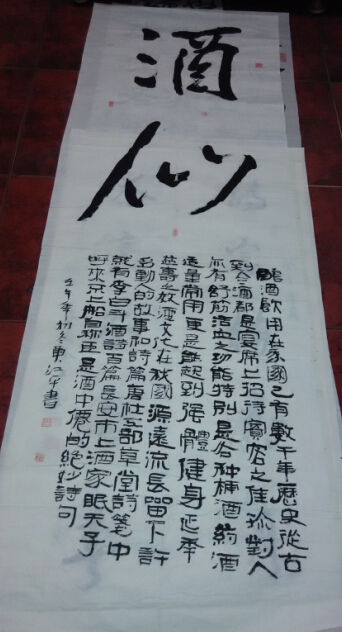 酒仙
酒飲用在我國已有數千年歷史從古
到今酒都是宴席上招待賓客之佳珍對人
亦有舒筋活血之功能特別是各种補酒药酒
适量常用更是能起到强體健身延年
益壽之效酒文化在我國源遠流長留下許
多動人的故事和詩篇唐杜工部草堂詩箋中
就有李白斗酒詩百篇長安市上酒家眠天子
呼來不上船自称臣是酒中僊的絕妙詩句
壬午年初冬東江書